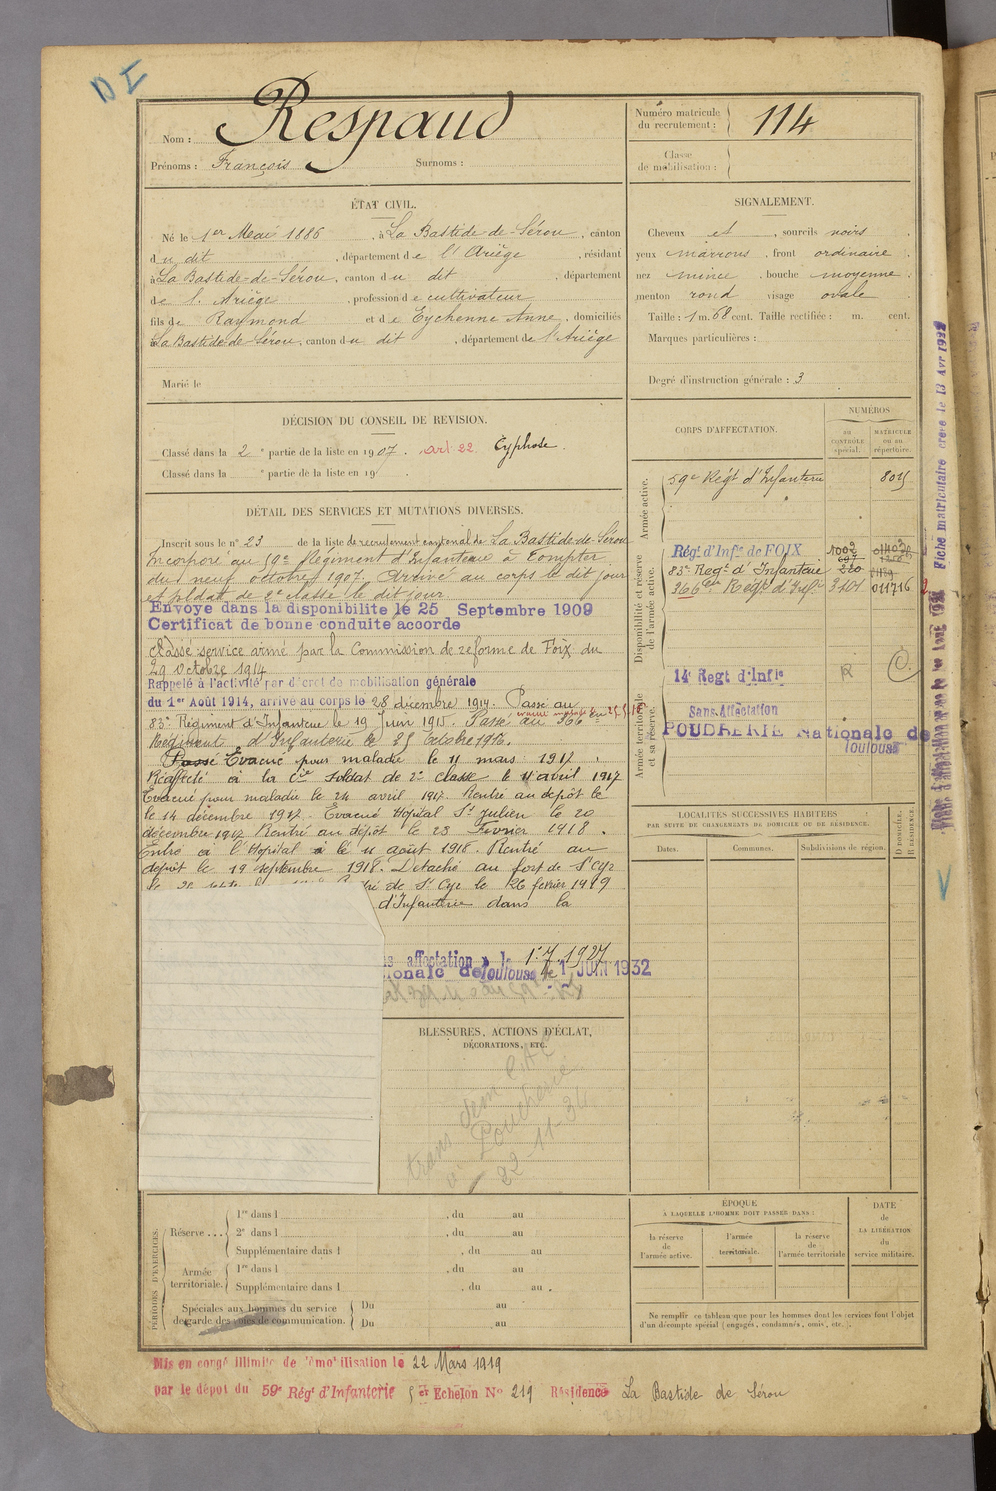 D I
Nom : Respaud
Prénoms : François Surnoms :
Numéro matricule
du recrutement : 114
Classe
de mobilisation :
ÉTAT CIVIL.
Né le 1er Mai 1886, à La Bastide-de-Sérou, canton
du dit, département de l'Ariège, résidant
à La Bastide-de-Sérou, canton du dit, département
de l'Ariège, profession de cultivateur
fils de Raymond et de Eychenne Anne, domiciliés
à La Bastide-de-Sérou, canton du dit, département de l'Ariège
Marié le
SIGNALEMENT.
Cheveux et, sourcils noirs
yeux marrons, front ordinaire
nez mince, bouche moyenne
menton rond visage ovale
Taille : 1 m. 68 cent. Taille rectifiée : m. cent.
Marques particulières :
Degré d'instruction générale : 3
DÉCISION DU CONSEIL DE REVISION.
Classé dans la 2e partie de la liste en 1907. art 22 Cyphose.
Classé dans la e partie de la liste en 19
DÉTAIL DES SERVICES ET MUTATIONS DIVERSES.
Inscrit sous le n° 23 de la liste de recrutement cantonal de La Bastide-de-Sérou
Incorporé au 59e Régiment d'Infanterie à compter
du neuf octobre 1907. Arrivé au corps le dit jour
et soldat de 2e classe le dit jour
Envoyé dans la disponibilité le 25 Septembre 1909
Certificat de bonne conduite accordé
Classé service armé par la Commission de réforme de Foix du
29 octobre 1914
Rappelé à l'activité par décret de mobilisation générale
du 1er Août 1914, arrivé au corps le 28 décembre 1914. Passé au
83e Régiment d'Infanterie le 19 Juin 1915. Passé au 366e
Régiment d'Infanterie le 25 octobre 1916.
Passé Evacué pour maladie le 11 mars 1917.
Réaffecté à la Cie soldat de 2e classe le 11 avril 1917
Evacué pour maladie le 24 avril 1917. Rentré au dépôt le
le 14 décembre 1917. Evacué Hôpital St Julien le 20
décembre 1917 Rentré au dépôt le 23 Fevrier 1918.
Entré à l'Hopital à le 11 août 1918. Rentré au
dépôt le 19 septembre 1918. Détaché au fort de St Cyr
de St Cyr le 26 février 1919
d'Infanterie dans la
affectation le 1.7.1927
ionale de Toulouse le 1 JUIN 1932
CORPS D'AFFECTATION.
NUMÉROS
au
CONTRÔLE
spécial.
MATRICULE
ou au
répertoire.
Armée active.
59e Régt d'Infanterie 8015
Disponibilité et réserve
de l'armée active.
Régt d'Infie de FOIX 1002
83e Régt d'Infanterie 220
366em Régt d'Infie 3104 011716
Armée territoriale
et sa réserve.
14e Regt d'Infie
Sans Affectation
POUDRERIE Nationale de
Toulouse
LOCALITÉS SUCCESSIVES HABITÉES
PAR SUITE DE CHANGEMENTS DE DOMICILE OU DE RÉSIDENCE.
Dates. Communes. Subdivisions de région.
D DOMICILE.
R RÉSIDENCE.
BLESSURES, ACTIONS D'ÉCLAT,
DÉCORATIONS, ETC.
22-11-34
PÉRIODES D'EXERCICES.
Réserve ...
1re dans l , du au
2e dans l , du au
Supplémentaire dans l , du au
Armée
territoriale.
1re dans l , du au
Supplémentaire dans l , du au .
Spéciales aux hommes du service
de garde des voies de communication.
Du au
Du au
ÉPOQUE
A LAQUELLE L'HOMME DOIT PASSER DANS :
la réserve
de
l'armée active.
l'armée
territoriale.
la réserve
de
l'armée territoriale
DATE
de
LA LIBÉRATION
du
service militaire.
Ne remplir ce tableau que pour les hommes dont les services font l'objet
d'un décompte spécial (engagés, condamnés, omis, etc.).
Mis en congé illimité de démobilisation le 22 Mars 1919
par le dépôt du 59e Régt d'Infanterie 5er Echelon No 219 Résidence La Bastide de Sérou